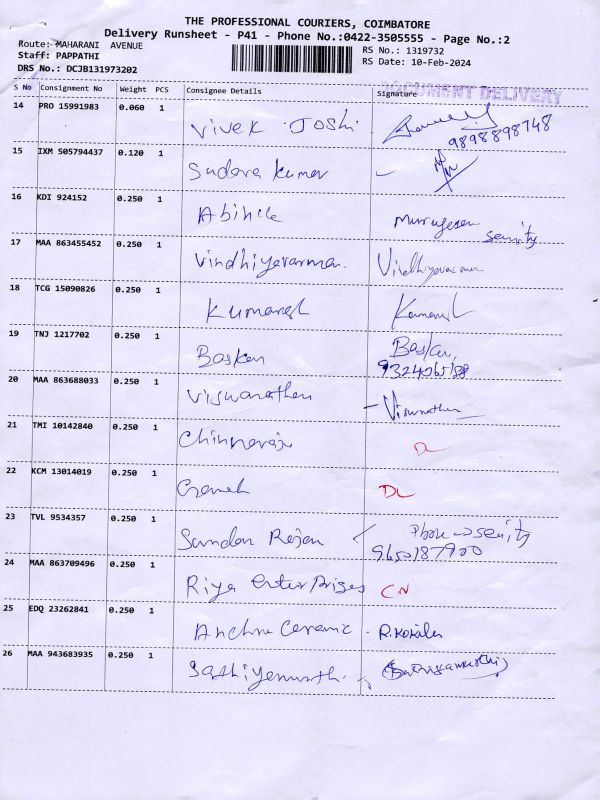 THE PROFESSIONAL COURIERS, COIMBATORE
Delivery Runsheet - P41 - Phone No.:0422-3505555 - Page No.:2
Route: MAHARANI AVENUE
RS No.: 1319732
Staff: PAPPATHI
RS Date: 10-Feb-2024
DRS No.: DCJB131973202
DOCUMENT DELIVERY
S No Consignment No Weight PCS Consignee Details Signature
14 PRO 15991983 0.060 1 Vivek Joshi
9898898748
15 IXM 505794437 0.120 1 Sudara Kumar
16 KDI 924152 0.250 1 Murugesan
17 MAA 863455452 0.250 1 Vindhiyavarman.
18 TCG 15090826 0.250 1 Kumaresh
19 TNJ 1217702 0.250 1 Baskar Baskar
20 MAA 863688033 0.250 1 Viswanathan
21 TMI 10142840 0.250 1 Chinnaraju DL
22 KCM 13014019 0.250 1 Ganesh DL
23 TVL 9534357 0.250 1 Sundar Rajan Phone
24 MAA 863709496 0.250 1 Riya enterprises CN
25 EDQ 23262841 0.250 1 Ceramic R. Kokila
26 MAA 943683935 0.250 1